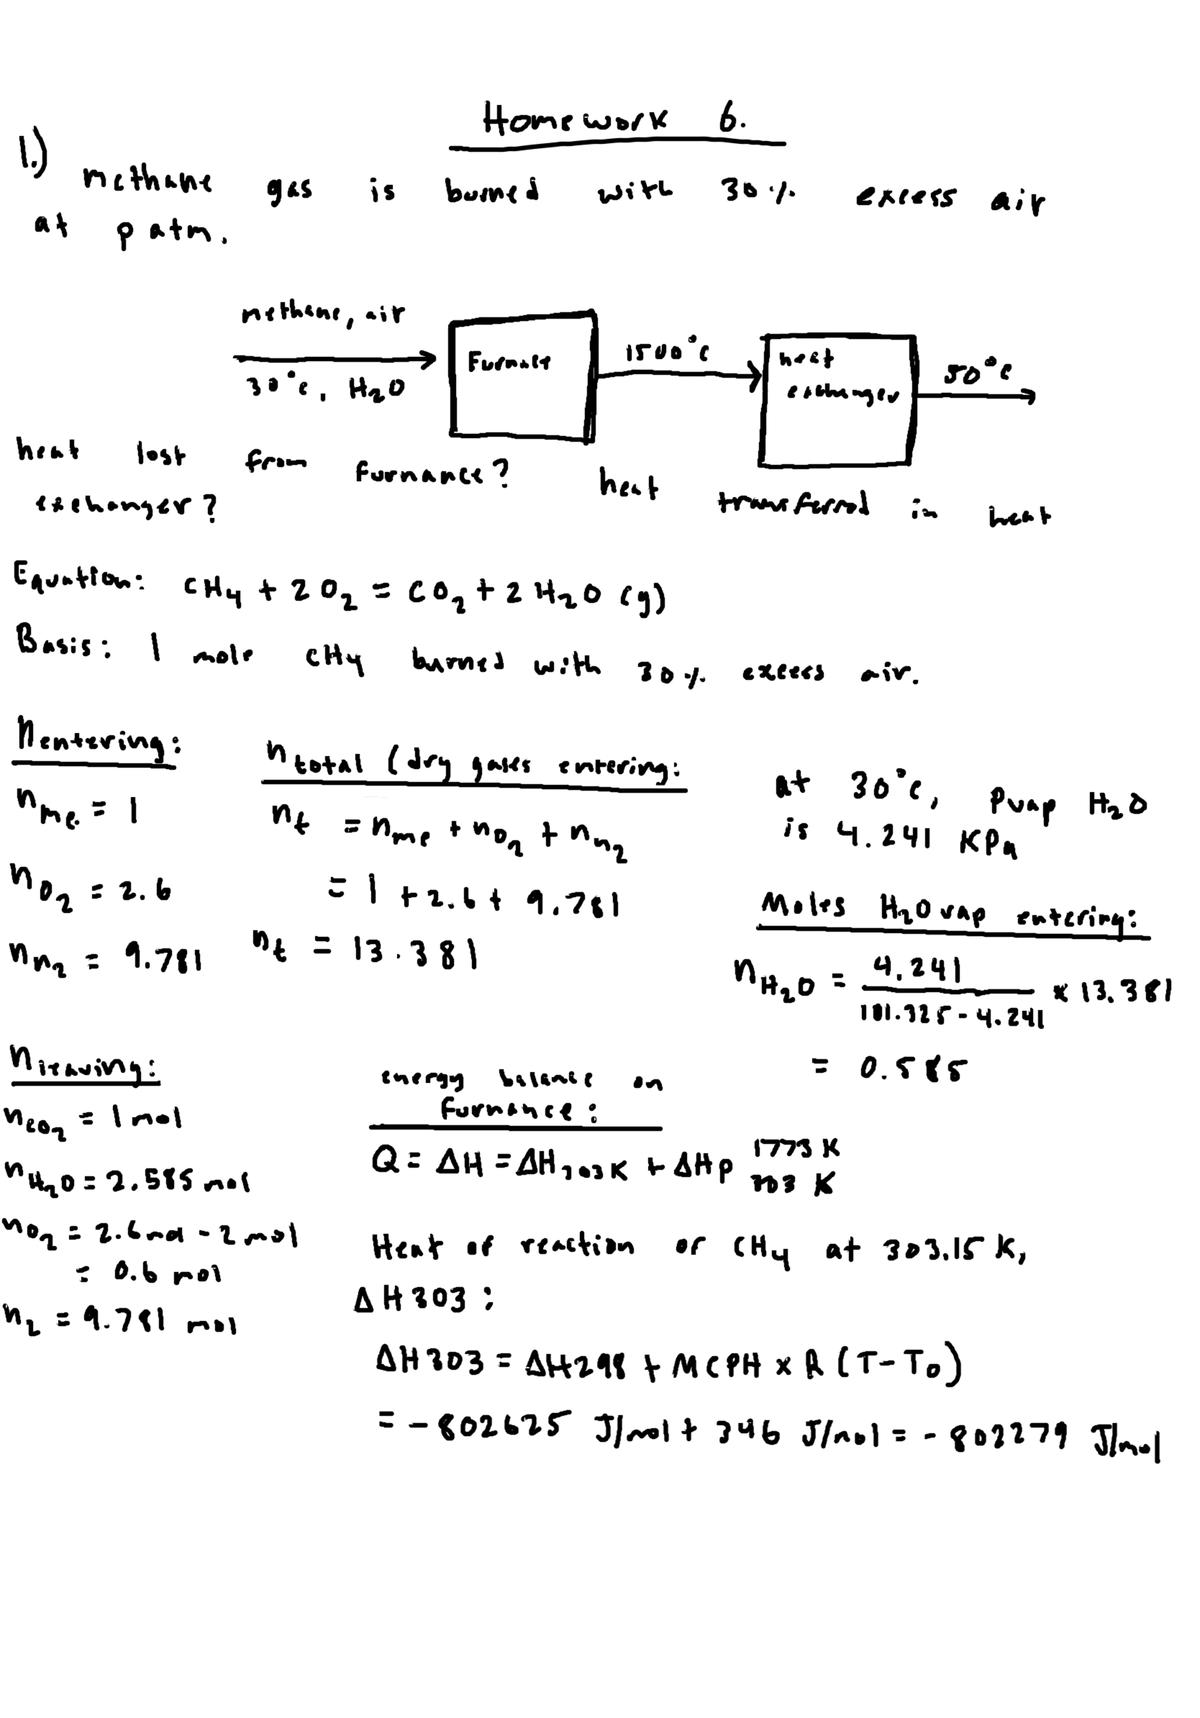 Homework 6.
1.)
methane gas is burned with 30% excess air
at p atm.
methane, air
30°c, H₂O
Furnace
1500°c
heat
exchanger
50°c
heat lost from furnance? heat transferred in heat
exchanger?
Equation: CH₄ + 2O₂ = CO₂ + 2H₂O (g)
Basis: 1 mole CH₄ burned with 30% excess air.
n entering:
n me. = 1
n O₂ = 2.6
n n₂ = 9.781
n total (dry gases entering:
n t = n me + n O₂ + n n₂
= 1 + 2.6 + 9.781
n t = 13.381
at 30°c, Pvap H₂O
is 4.241 KPa
Moles H₂O vap entering:
n H₂O = 4.241 / 101.325 - 4.241 × 13.381
= 0.585
n leaving:
n CO₂ = 1 mol
n H₂O = 2.585 mol
n O₂ = 2.6 mol - 2 mol
= 0.6 mol
n₂ = 9.781 mol
energy balance on
furnance:
Q = ΔH = ΔH 303K + ΔHp 1773 K
303 K
Heat of reaction of CH₄ at 303.15 K,
ΔH303:
ΔH303 = ΔH298 + MCPH × R (T-T₀)
= -802625 J/mol + 346 J/mol = -802279 J/mol